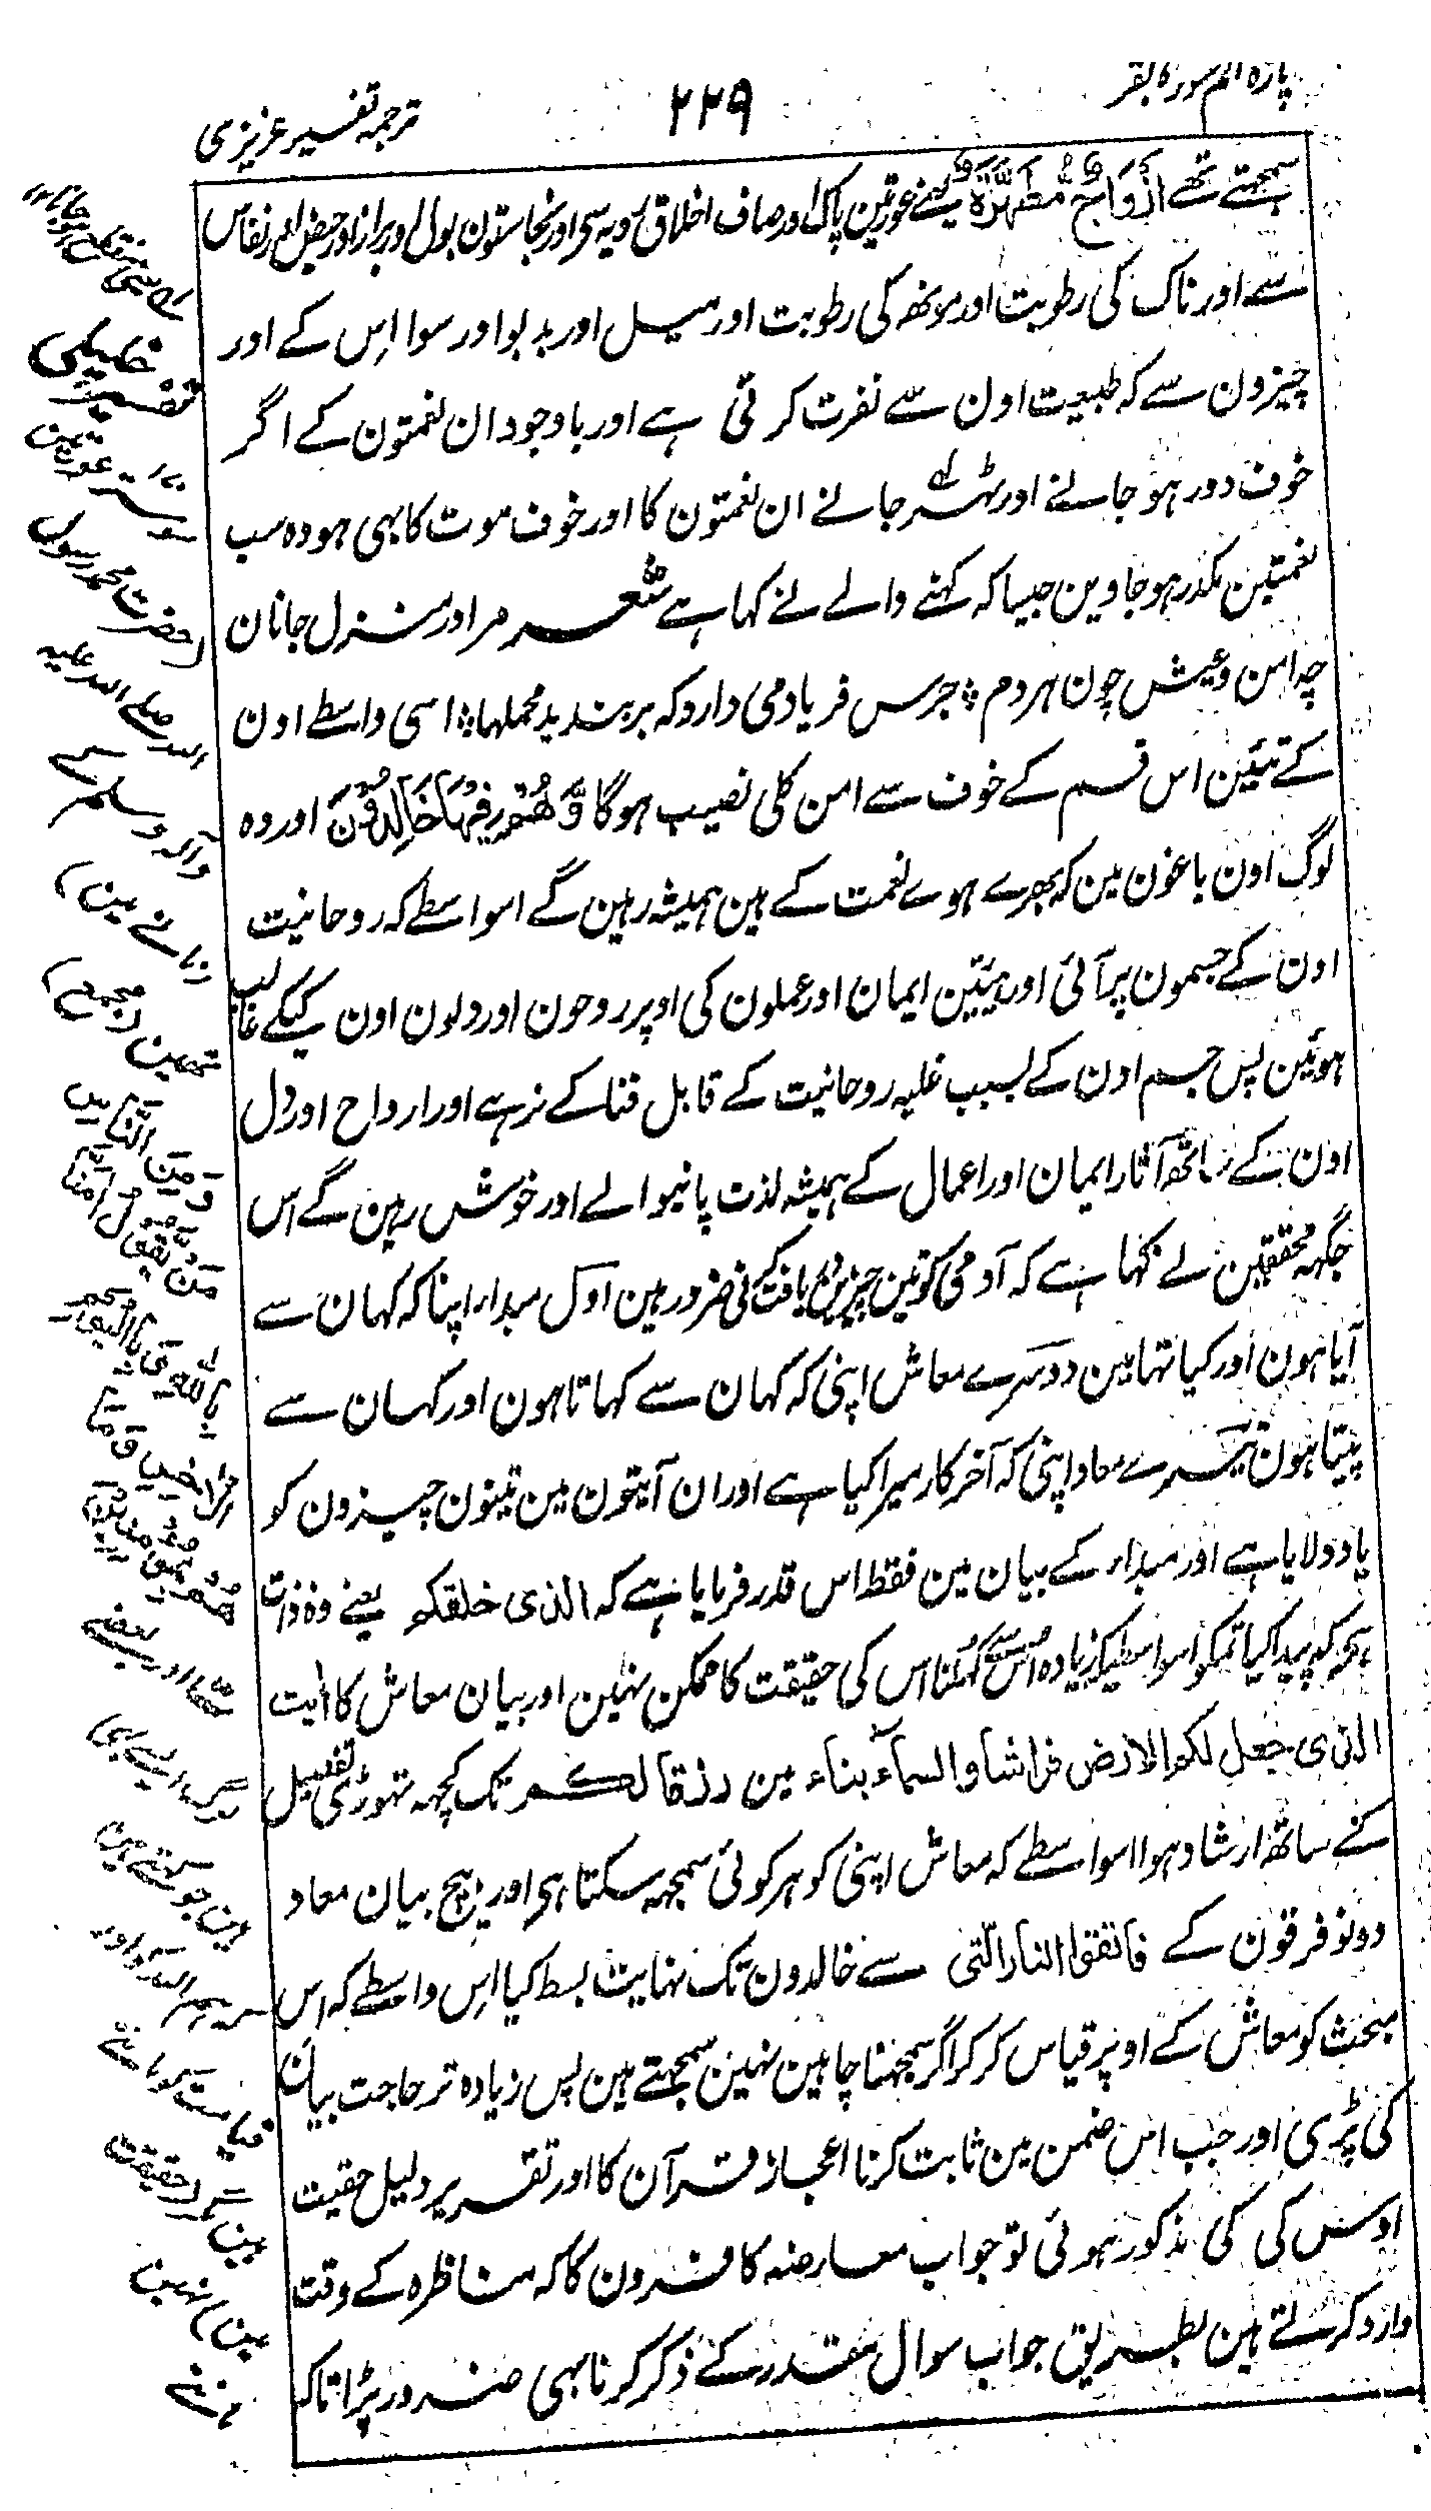 پارہ الم سورہ بقر
۲۲۹
ترجمہ تفسیر عزیزی
سمجھتے تھے اَزْوَاجٌ مُّطَهَّرَةٌ یعنے عورتین پاک اور صاف اخلاق رویہ سی اور نجاستون بول و براز اور حیض اور نفاس
سے اور ناک کی رطوبت اور مونھ کی رطوبت اور میل اور بدبو اور سوا اس کے اور
چیزون سے کہ طبیعت اون سے نفرت کرتی ہے اور باوجود ان نعمتون کے اگر
خوف دور ہو جانے اور ٹہر جانے ان نعمتون کا اور خوف موت کا بہی ہو وہ سب
نعمتین مکدر ہو جاوین جیسا کہ کہنے والے نے کہا ہے شعر مرا در منزل جانان
چہ امن و عیش چون ہر دم ؛ جرس فریاد می دارد کہ بربندید محملہا ؛ اسی واسطے اون
کے تئین اس قسم کے خوف سے امن کلی نصیب ہوگا وَّهُمْ فِيْهَا خَالِدُوْنَ اور وہ
لوگ اون باغون مین کہ بھرے ہوے نعمت کے ہین ہمیشہ رہین گے اسواسطے کہ روحانیت
اون کے جسمون پر آئی اور ہیئتین ایمان اور عملون کی اوپر روحون اور دلون اون کیکے غالب
ہوئین پس جسم اون کے بسبب غلبہ روحانیت کے قابل فنا کے نرہے اور ارواح اور دل
اون کے ساتھ آثار ایمان اور اعمال کے ہمیشہ لذت پانیوالے اور خوش رہین گے اس
جگہہ محققین نے کہا ہے کہ آدمی کو تین چیزین یافت کرنی ضرور ہین اول مبداء اپنا کہ کہان سے
آیا ہون اور کیا تہا مین دوسرے معاش اپنی کہ کہان سے کہاتا ہون اور کہان سے
پیتا ہون تیسرے معاد اپنی کہ آخر کار میرا کیا ہے اور ان آیتون مین تینون چیزون کو
یاد دلایا ہے اور مبداء کے بیان مین فقط اس قدر فرمایا ہے کہ الذی خلقکم یعنے وہ ذات
ہے کہ پیدا کیا تمکو اسواسطیکہ زیادہ اس سے کہنا اس کی حقیقت کا ممکن نہین اور بیان معاش کا آیت
الذی جعل لکم الارض فراشا والسماء بناء مین رزقا لکم تک کچہہ تہوڑی تفصیل
کے ساتھ ارشاد ہوا اسواسطے کہ معاش اپنی کو ہر کوئی سمجہہ سکتا ہی اور بیچ بیان معاد
دونو فرقون کے فاتقوا النار التی سے خالدون تک نہایت بسط کیا اس واسطے کہ اس
مبحث کو معاش کے اوپر قیاس کر کر اگر سمجہنا چاہین نہین سمجہتے ہین پس زیادہ تر حاجت بیان
کی پڑی اور جب اس ضمن مین ثابت کرنا اعجاز قرآن کا اور تقریر دلیل حقیت
اوس کی کی مذکور ہوئی تو جواب معارضہ کافرون کا کہ مناظرہ کے وقت
وارد کرتے ہین بطریق جواب سوال مقدر کے ذکر کرنا بہی ضرور پڑا تاکہ
تفسیر
عورتین
(حضرت محمد رسول
اللہ صلے اللہ علیہ
وآلہ وسلم کے
زمانے مین)
تھین (مجمع)
وَمِنَ النَّاسِ
مَنْ يَّقُوْلُ اٰمَنَّا
بِاللّٰهِ وَبِالْيَوْمِ
الْاٰخِرِ وَمَا
هُمْ بِمُؤْمِنِيْنَ
اور بعضے
ہین جو کہتے ہین
ہم اللہ کو اور
قیامت کو مانتے
ہین (حقیقت
مین) نہین